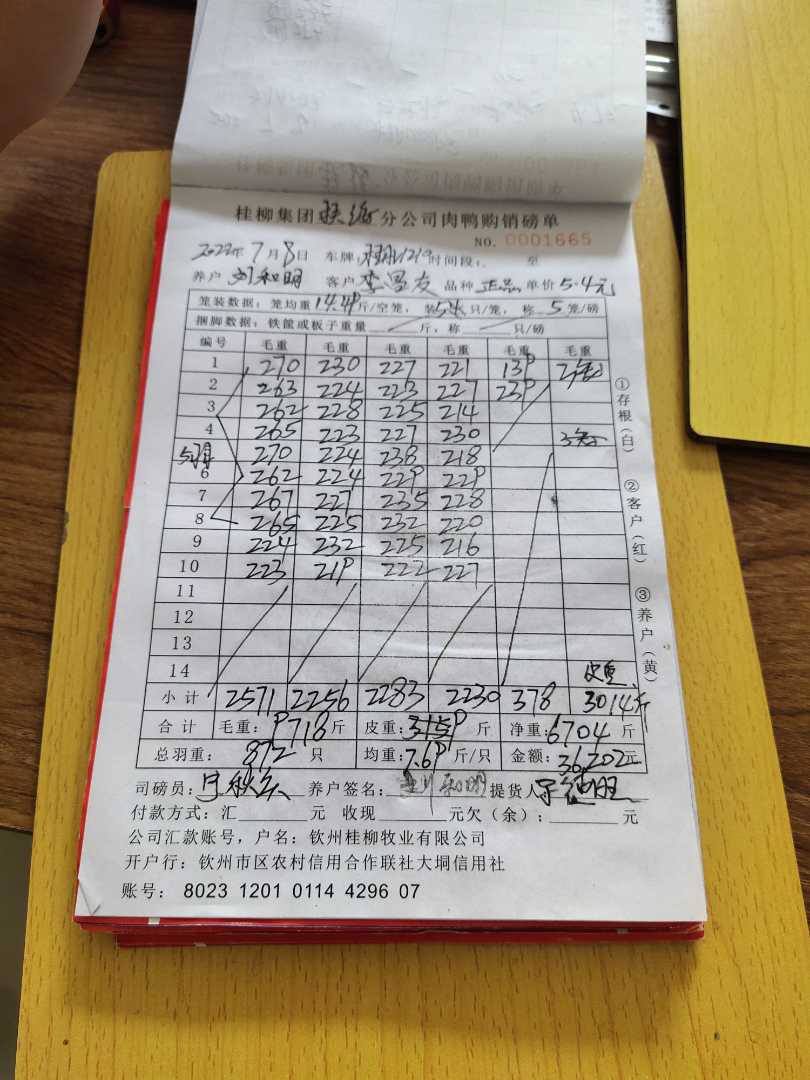 桂柳集团 分公司肉鸭购销磅单
NO. 0001665
7月8日 车牌: 时间段: 至
养户 刘和明 客户 李 友 品种 正品 单价 5.4元
笼装数据:笼均重 斤/空笼,装 只/笼,称 5 笼/磅
捆脚数据:铁筐或板子重量 斤,称 只/磅
编号 毛重 毛重 毛重 毛重 毛重 毛重
1 270 230 227 221 139
2 263 224 223 227 239
3 262 228 225 214
4 265 223 227 230
270 224 238 218
6 262 224 229 229
7 267 227 235 228
8 265 225 232 220
9 224 232 225 216
10 223 219 222 227
11
12
13
14 皮重
小计 2571 2256 2283 2230 378 3014斤
合计 毛重: 9718 斤 皮重: 斤 净重: 6704 斤
总羽重: 872 只 均重: 7.69 斤/只 金额: 36202元
司磅员: 养户签名: 刘和明 提货人
付款方式:汇 元 收现 元欠(余): 元
公司汇款账号,户名:钦州桂柳牧业有限公司
开户行:钦州市区农村信用合作联社大垌信用社
账号: 8023 1201 0114 4296 07
①存根(白)
②客户(红)
③养户(黄)